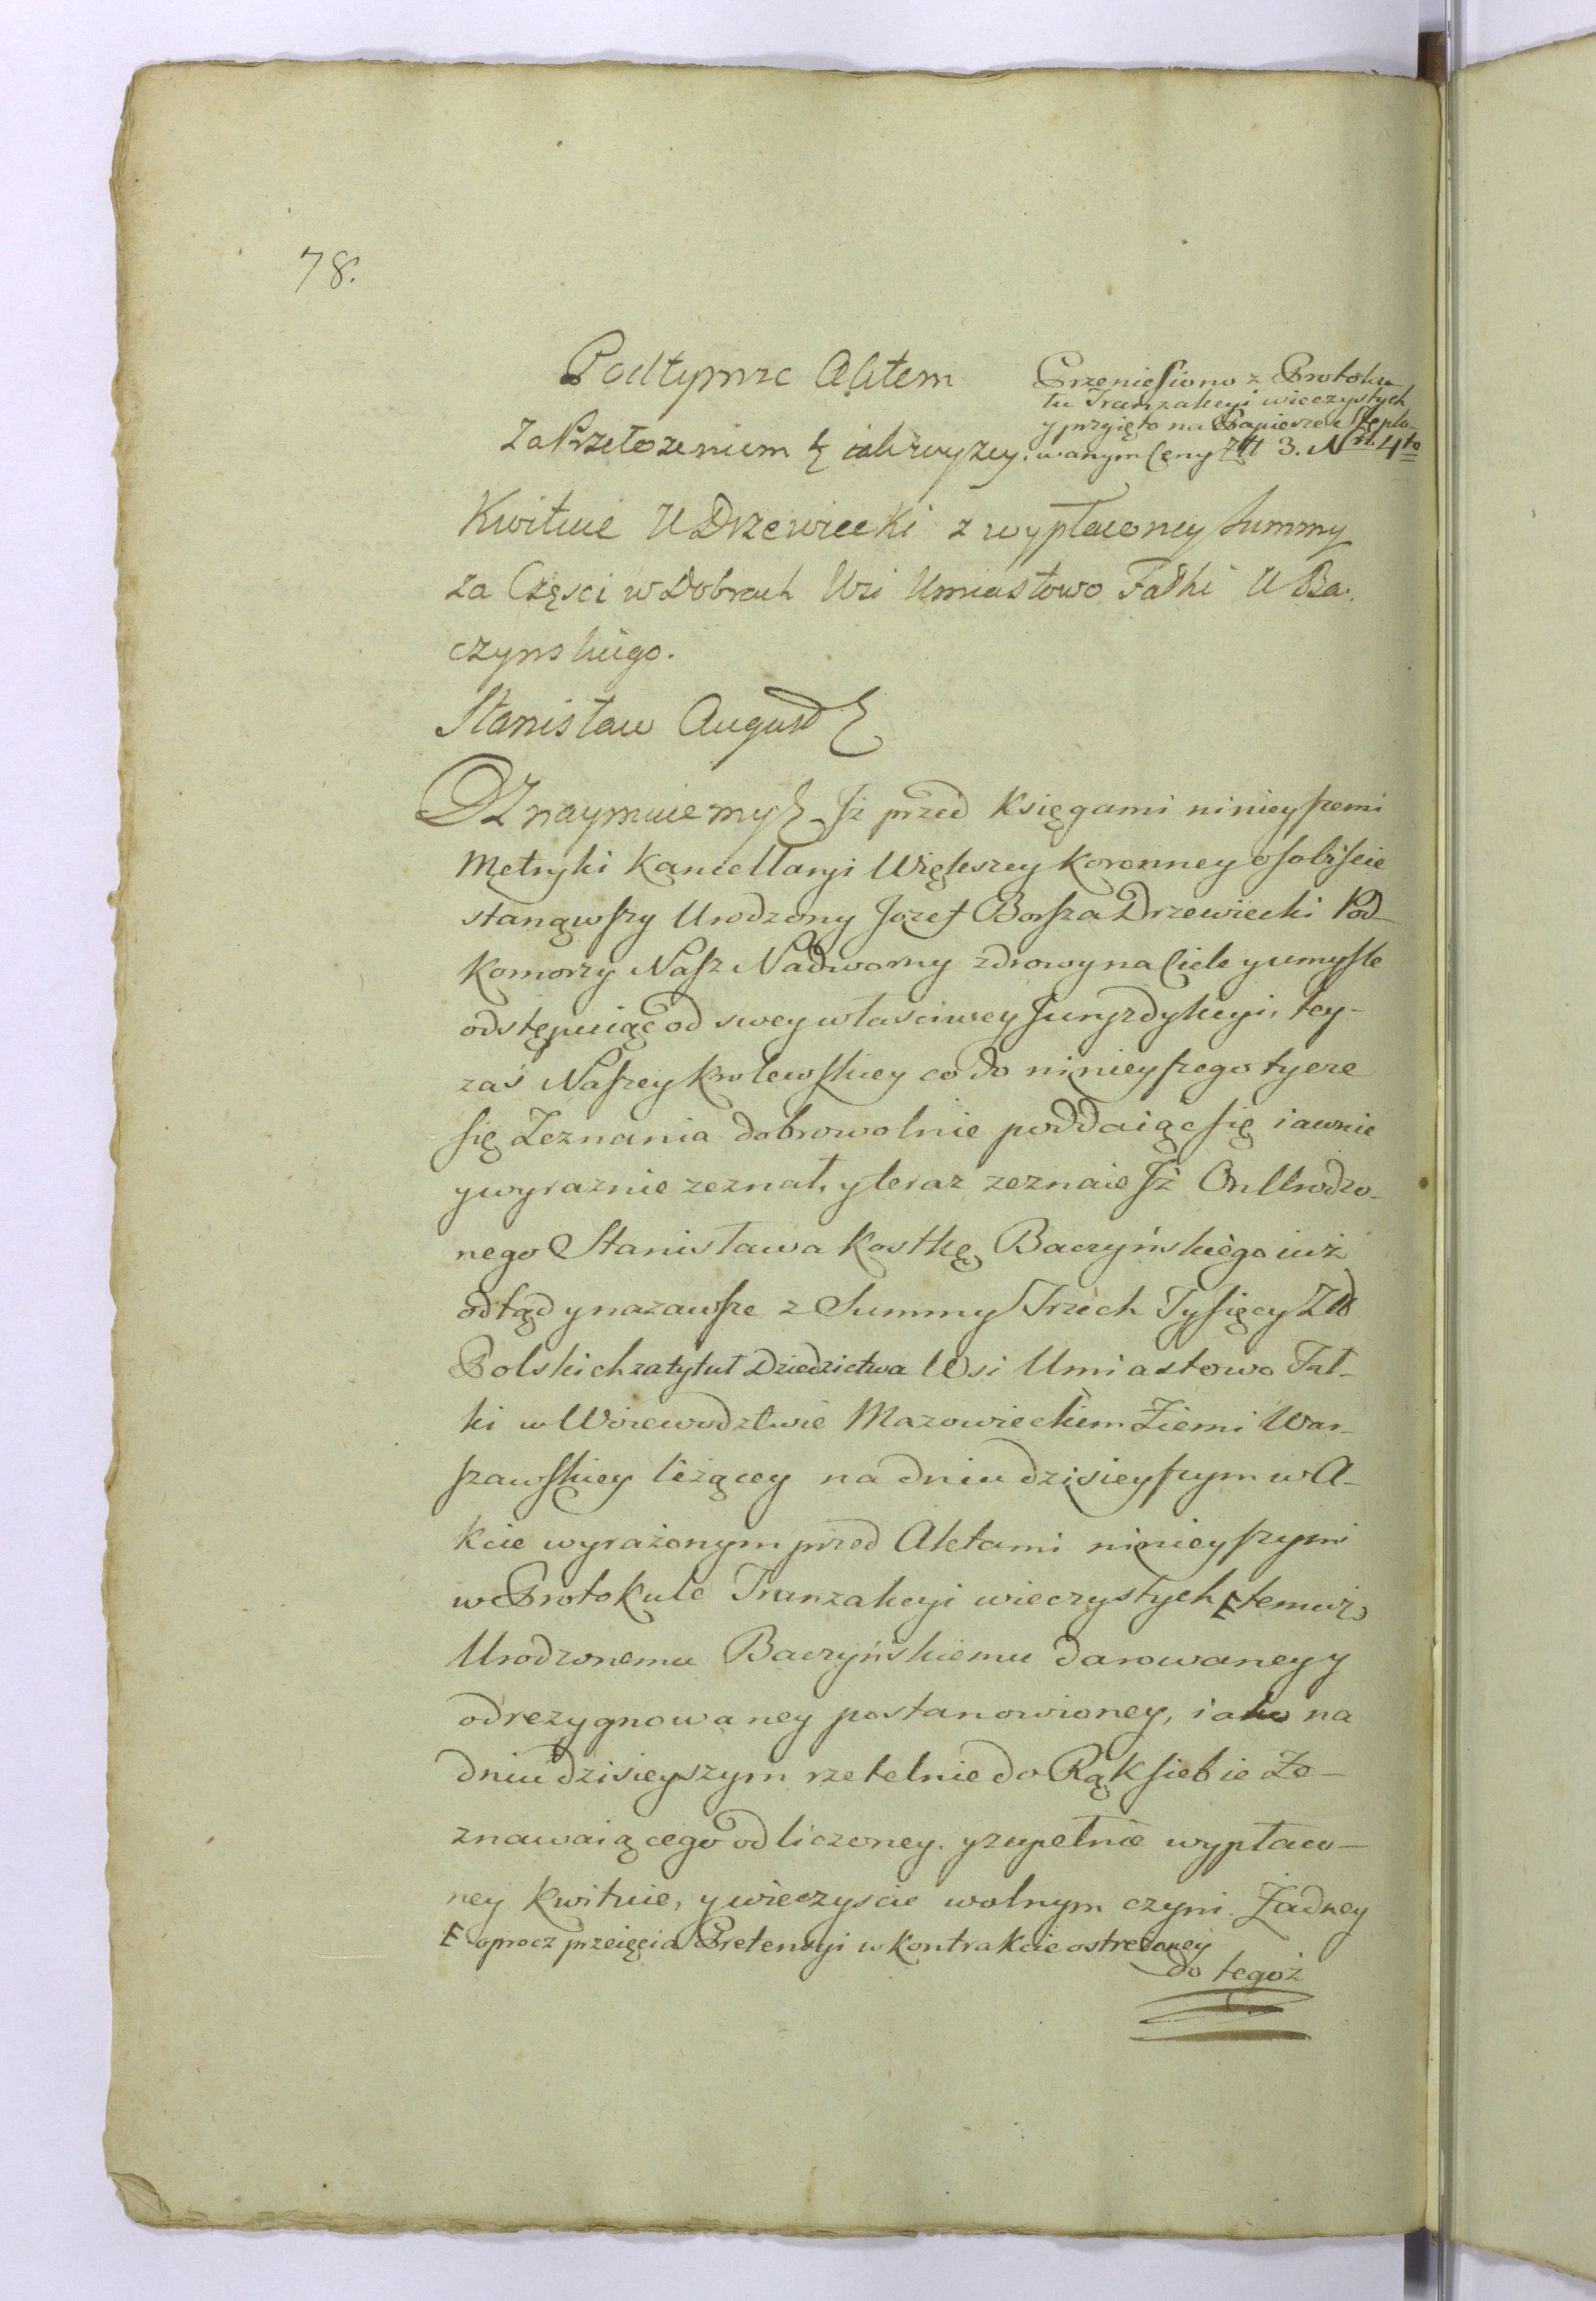 78.
Podtymże Aktem
Za Przełożeniem & iako wyzey.
Przeniesiono z Protoku-
łu Tranzakcyi wieczystych
y przyięto na Papierze Steplo-
wanym Ceny Złł 3. Nro 4to
Kwituie U Drzewiecki z wypłaconey Summy
za Części w Dobrach Wsi Umiastowo Fałki U Ba-
czynskiego.
Stanisław August &
OZnaymuiemy & Jż przed Księgami ninieyszemi
Metryki Kancellaryi Większey Koronney osobiście
stanąwszy Urodzony Jozef Bossza Drzewiecki Pod-
komorzy Nasz Nadworny zdrowy na Ciele y umyśle
odstępuiąc od swey właściwey Juryzdykcyi, tey-
zaś Naszey krolewskiey co do ninieyszego tycze
się Zeznania dobrowolnie poddaiąc się iawnie
y wyraznie zeznał, y teraz zeznaie Jż On Urodzo-
nego Stanisława Kostkę Baczyńskiego iuż
odtąd y nazawsze z Summy Trzech Tysięcy Złł
Polskich za tytuł Dziedzictwa Wsi Umiastowo Fał-
ki w Woiewodztwie Mazowieckiem Ziemi War-
szawskiey leżącey na dniu dzisieyszym w A-
kcie wyrażonym przed Aktami ninieyszymi
w Protokule Tranzakcyi wieczystych F temuż
Urodzonemu Baczyńskiemu darowaney y
odrezygnowaney postanowioney, iako na
dniu dzisieyszym rzetelnie do Rąk siebie Ze-
znawaiącego odliczoney. y zupełnie wypłaco-
ney kwituie, y wieczyście wolnym czyni. Żadney
F oprocz przeięcia Pretensyi w Kontrakcie ostrzeżoney
do tegoż